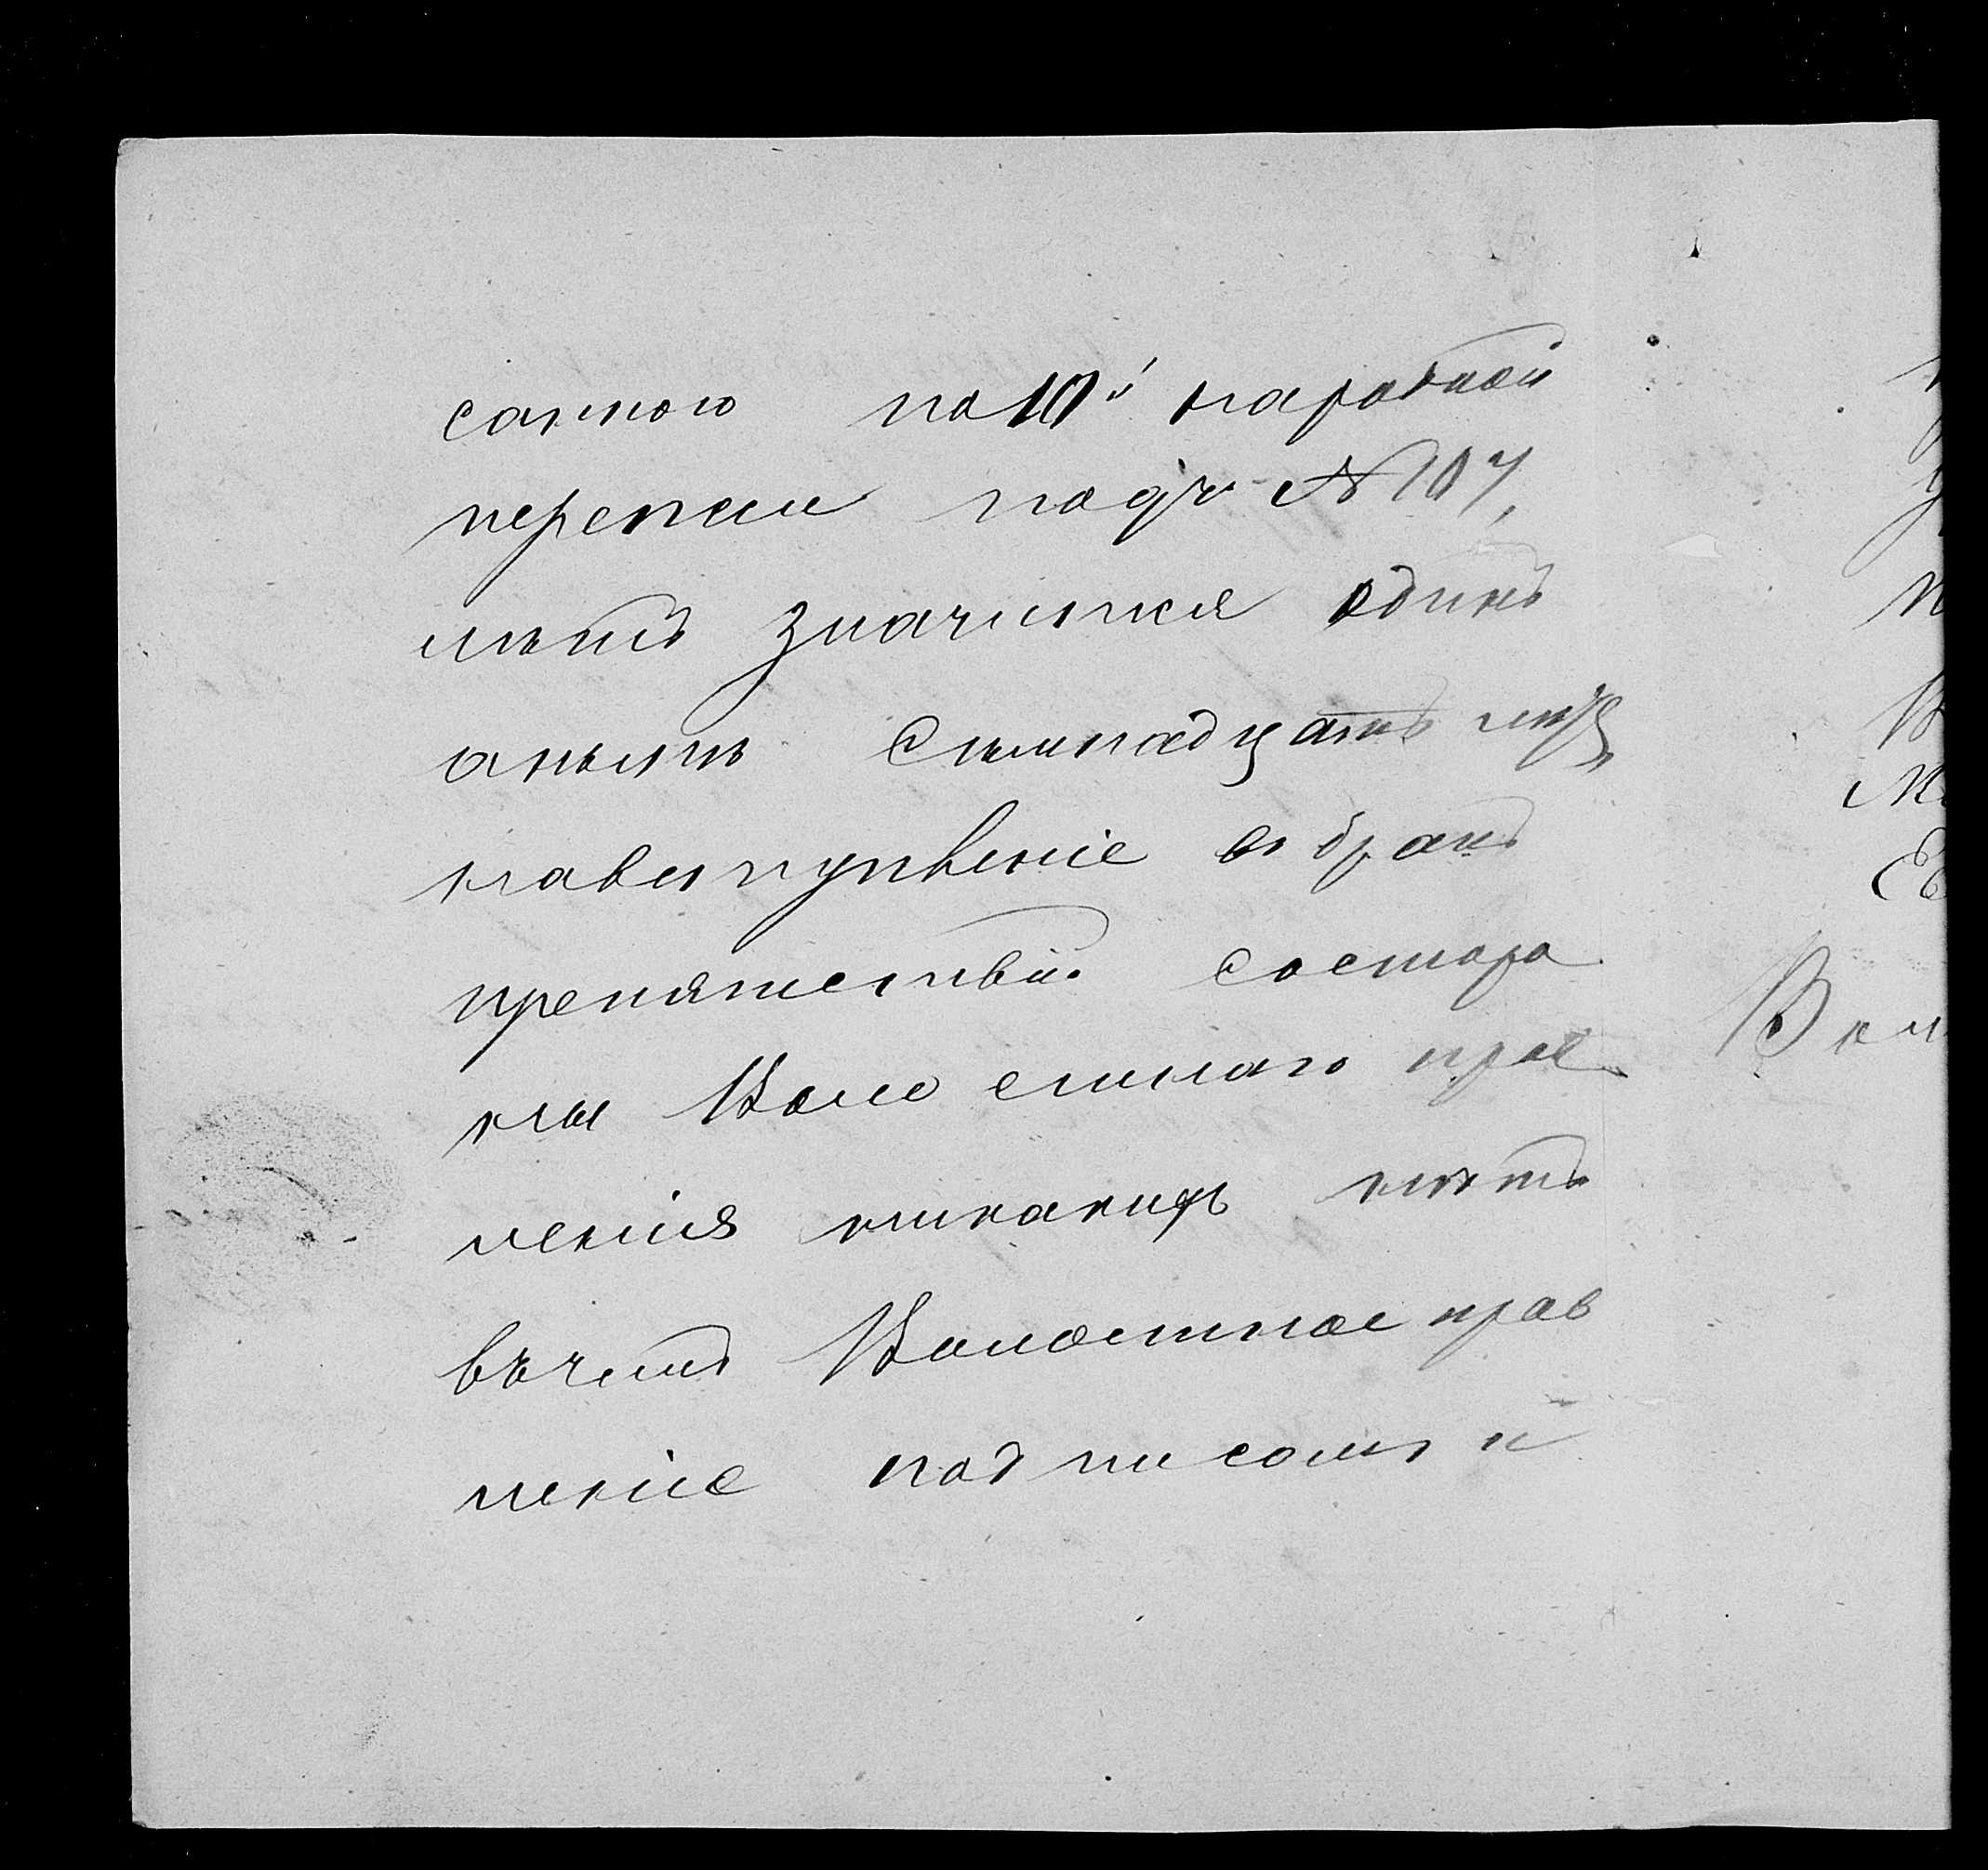 санною по 10й народной
переписи подъ № 107,
летъ значится одинъ
анъихъ Семнадцать
навступвеніе въ бракъ
препятствій состоро
ны Воло стнаго прав
ленія никакихъ нетъ
въчемъ Волостное прав
леніе под писомъ и